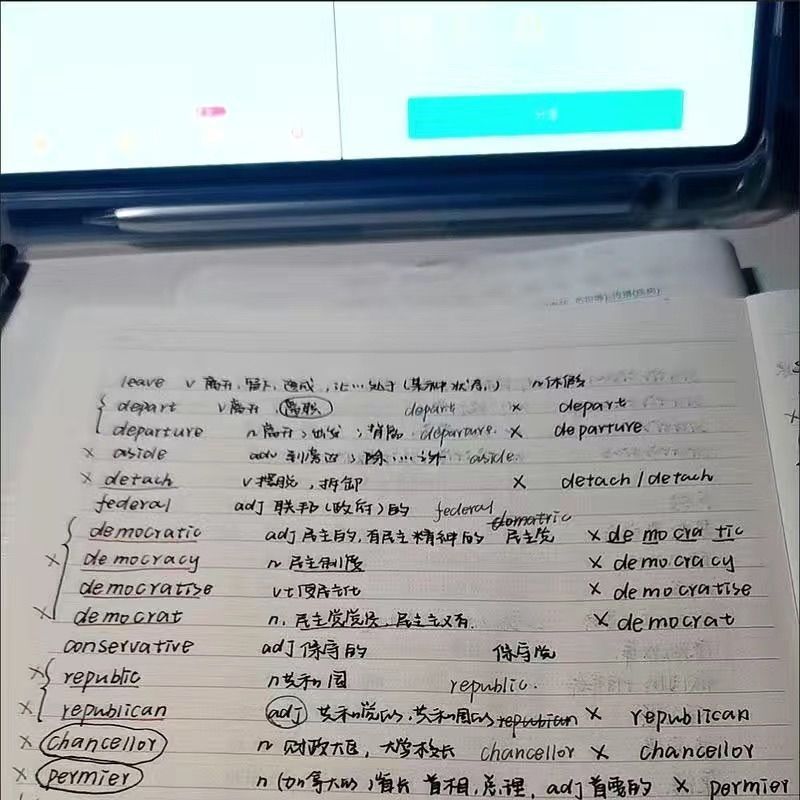 leave v 离开,留下,造成,让…处于(某种状态) n 休假
depart v 离开,离职 depart × depart
departure n 离开;出发;背离 departure. × departure
× aside adv 到旁边;除…外 aside.
× detach v 摆脱,拆卸 × detach / detach
federal adj 联邦(政府)的 federal
democratic adj 民主的,有民主精神的 民主党 × democratic
× democracy n 民主制度 × democracy
democratise vt 使民主化 × democratise
× democrat n. 民主党党员,民主主义者. × democrat
conservative adj 保守的 保守党
× republic n 共和国 republic.
× republican adj 共和党的,共和国的 × republican
× chancellor n 财政大臣,大学校长 chancellor × chancellor
× permier n (加拿大的)省长 首相,总理, adj 首要的 × permier